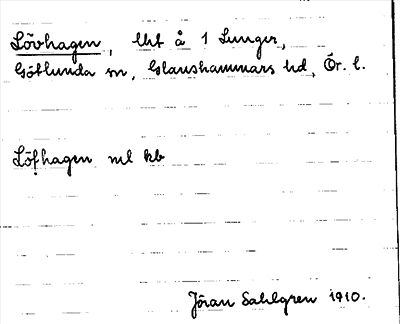 Lövhagen, lht å 1 Lunger,
Götlunda sn, Glanshammars hd, Ör. l.
Löfhagen ml kb
Jöran Sahlgren 1910.